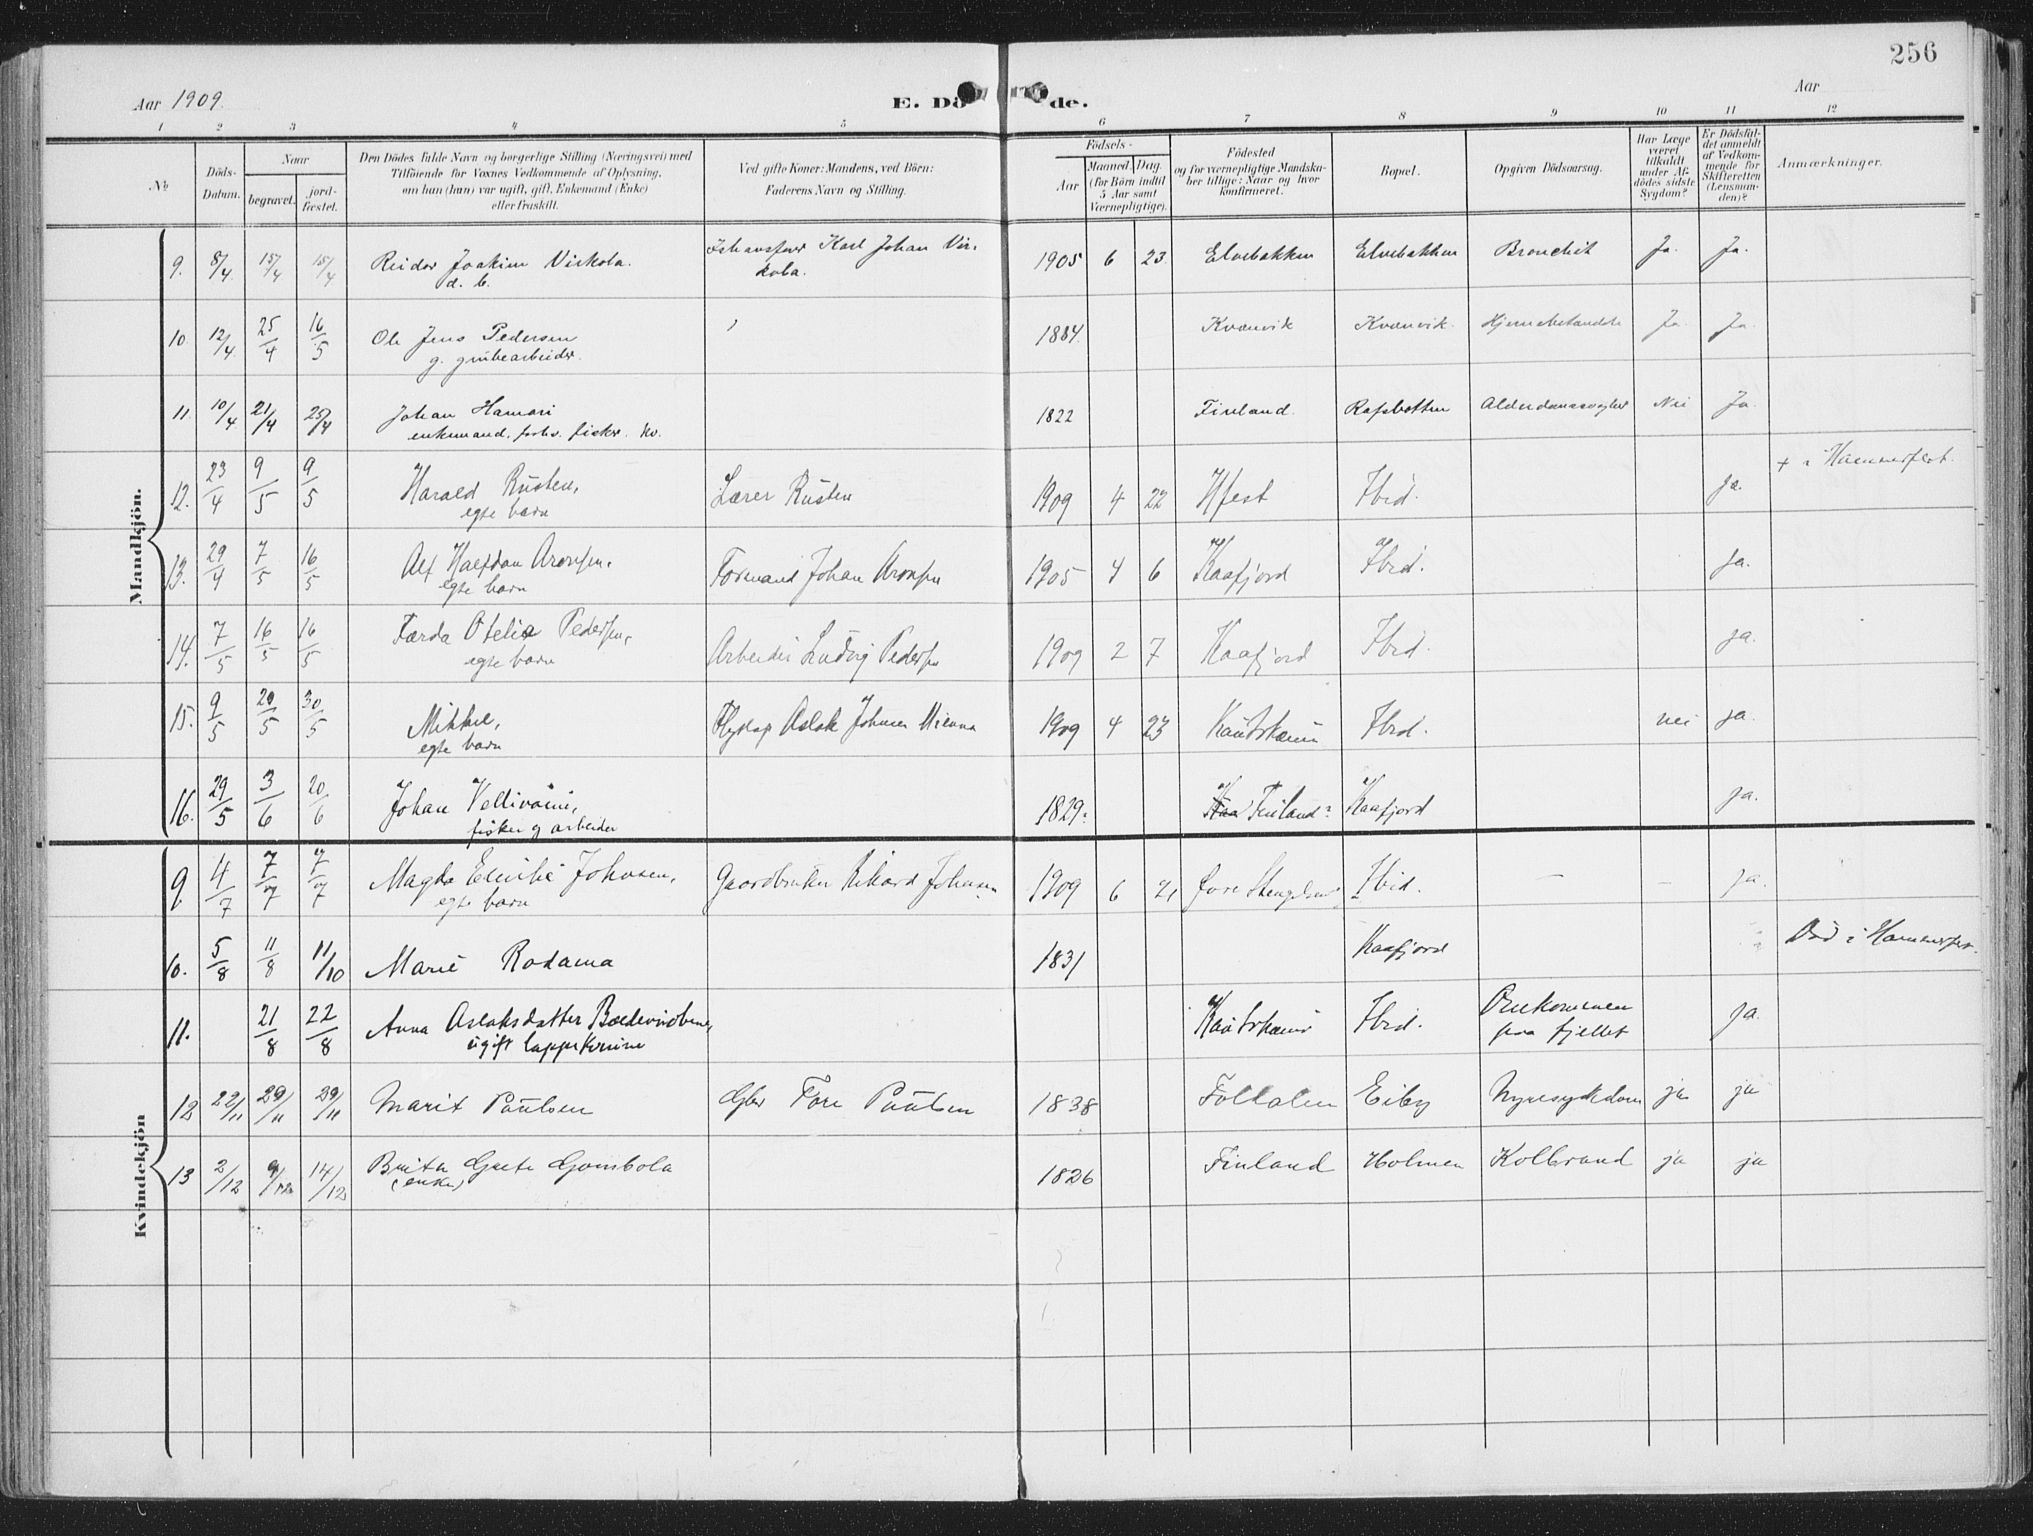 256
Aar 1909.
E. Dö de.
Aar
1 2 3 4 5 6 7 8 9 10 11 12
No
Döds-Datum.
Naar
begravet.
jord-fæstet.
Den Dödes fulde Navn og borgerlige Stilling (Næringsvei) med
Tilföiende för Voxnes Vedkommende af Oplysning,
om han (hun) var ugift, gift, Enkemand (Enke)
eller fraskilt.
Ved gifte Koner: Mandens, ved Börn:
Faderens Navn og Stilling.
Födsels-
Aar
Maaned. Dag.
(for Börn indtil
5 Aar samt
Værnepligtige).
Födested
og for værnepligtige Mandska-
ber tillige: Naar og hvor
konfirmeret.
Bopæl.
Opgiven Dödsaarsag.
Har Læge
været
tilkaldt
under Af-
dödes sidste
Sygdom?
Er Dödsfal-
det anmeldt
af Vedkom-
mende for
Skifteretten
(Lensman-
den)?
Anmærkninger.
Mandkjön.
9. 8/4 15/4 15/4 Reidar Joakim Viskola. Karl Johan Vis- 1905 6 23 Elvebakken Elvebakken Bronchit Ja. Ja.
d. b. kola.
10. 12/4 25/4 16/5 Ole Jens Pedersen 1884. Kvænvik Kvænvik. Hjernebetændelse Ja. Ja.
g. grubearbeider.
11. 10/4 21/4 25/4 Johan Hamari 1822 Finland. Rafsbotten Alderdomssvaghed Nei Ja.
enkemand, forhv. fisker. kv.
12. 23/4 9/5 9/5 Harald Rusten, Lærer Rusten 1909 4 22 Hfest Ibid. ja. + i Hammerfest.
egte barn
13. 29/4 7/5 16/5 Alf Halfdan Aronsen, Formand Johan Aronsen 1905 4 6 Kaafjord Ibid. ja.
egte barn
14. 7/5 16/5 16/5 Otelie Pedersen, Arbeider Ludvig Pedersen 1909 2 7 Kaafjord Ibid. ja.
egte barn
15. 9/5 20/5 30/5 Mikkel, Flytlap Aslak Johnsen 1909 4 23 Kautokeino Ibid. nei ja.
egte barn
16. 29/5 3/6 20/6 Johan 1829? Finland? Kaafjord ja.
fisker og arbeider
Kvindekjön
9. 4/7 7/7 7/7 Magda Emilie Johnsen, Gaardbruker Rikard Johnsen 1909 6 21 Øvre Ibid. — — ja.
egte barn
10. 5/8 11/8 11/10 Marie Rodama 1831 Kaafjord Død i Hammerfest.
11. 21/8 22/8 Anna Aslaksdatter Kautokeino Ibid. Omkommen ja
ugift lappekvinne paa fjellet
12 22/11 29/11 29/11 Marit Paulsen Gbr Tore Paulsen 1838 Folldalen Eiby Nyresygdom ja ja
13 2/12 9/12 14/12 Brita Grete Gombola 1826 Finland Holmen Kolbrand ja ja
(enke)